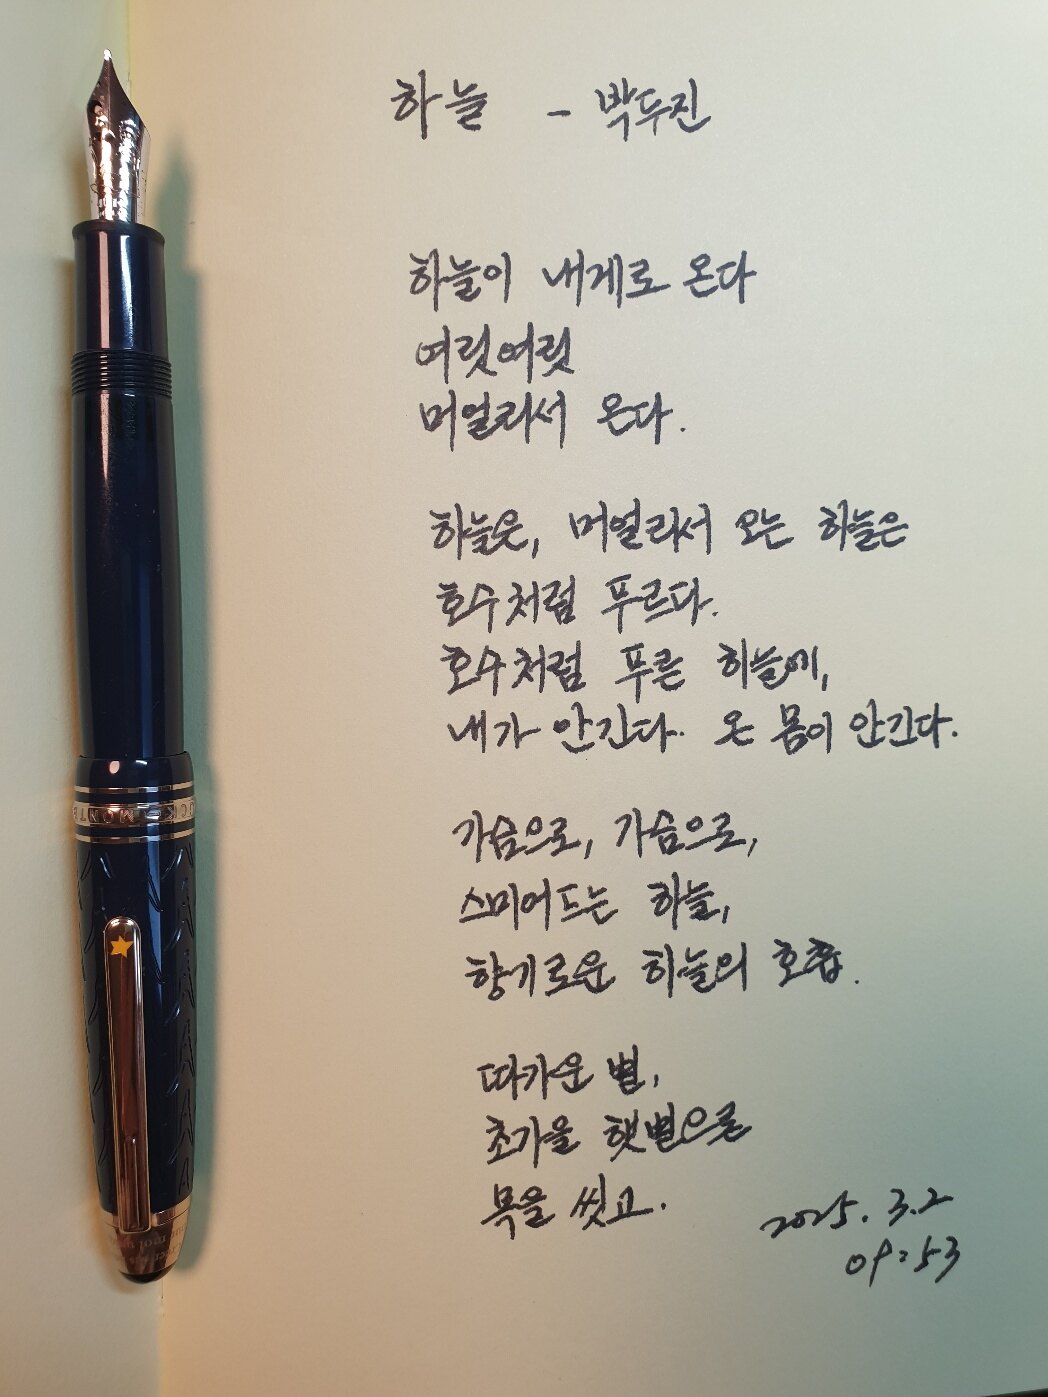 하늘 - 박두진
하늘이 내게로 온다
여릿여릿
머얼리서 온다.
하늘은, 머얼리서 오는 하늘은
호수처럼 푸르다.
호수처럼 푸른 하늘에,
내가 안긴다. 온 몸이 안긴다.
가슴으로, 가슴으로,
스미어드는 하늘,
향기로운 하늘의 호흡.
따가운 볕,
초가을 햇볕으론
목을 씻고.
2025. 3.2
09:53
MONTB